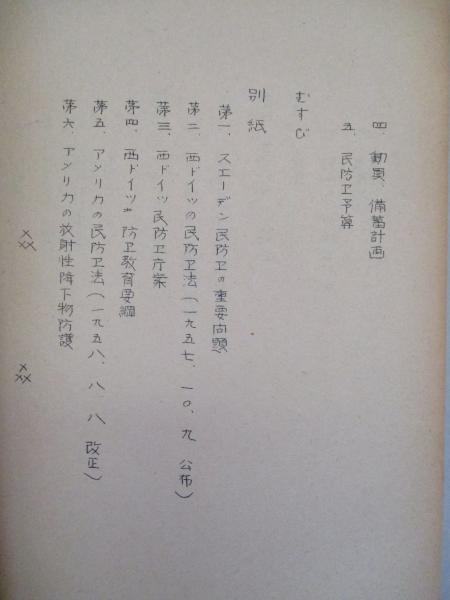 四、動員、備蓄計画
五、民防卫予算
むすび
別紙
第一、スエーデン民防卫の重要问題
第二、西ドイツの民防卫法(一九五七、一〇、九 公布)
第三、西ドイツ民防卫庁案
第四、西ドイツ 防卫教育要綱
第五、アメリカの民防卫法(一九五八、八、八 改正)
第六、アメリカの放射性降下物防護